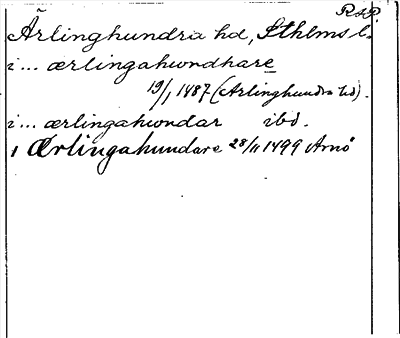 R s P.
Ärlinghundra hd, Sthlms l.
i ... ærlingahwndhare
19/1 1487 (Arlinghundra hd).
i ... ærlingahwndar ibd.
i Ærlingahundare 28/11 1499 Arnö